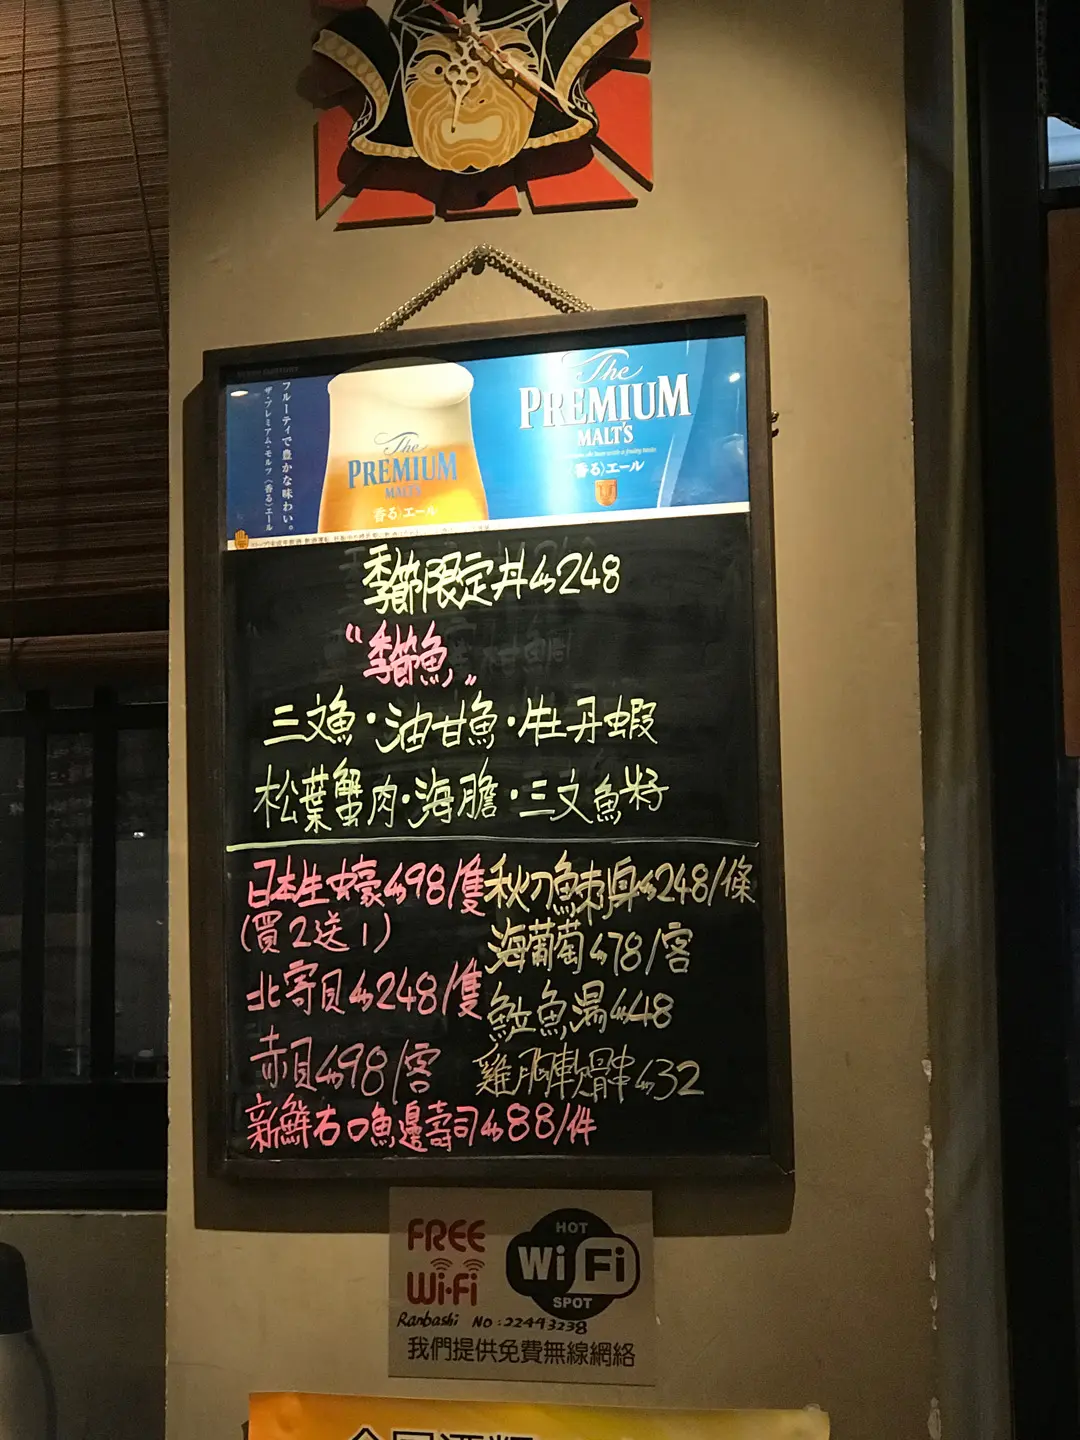 フルーティで豊かな味わい。
ザ・プレミアム・モルツ〈香る〉エール
The
PREMIUM
MALT'S
香る〉エール
The
PREMIUM
MALT'S
〈香る〉エール
季節限定丼 $248
"季節魚"
三文魚・油甘魚・牡丹蝦
松葉蟹肉・海膽・三文魚籽
日本生蠔 $98/隻
(買2送1)
北寄貝 $248/隻
赤貝 $98/客
新鮮右口魚邊壽司 $88/件
秋刀魚刺身 $248/條
海葡萄 $78/客
魚湯 $48
雞胸軟骨串 $32
FREE
Wi-Fi
HOT
WiFi
SPOT
Ranbashi NO:22443238
我們提供免費無線網絡